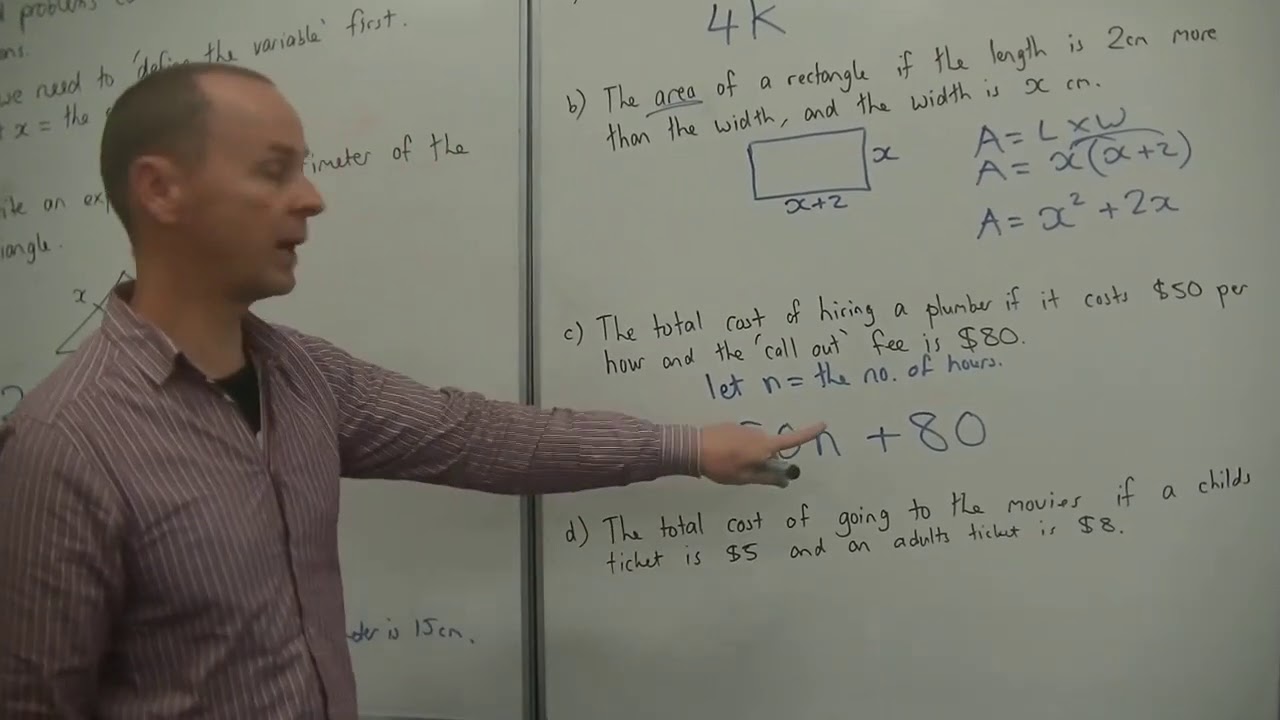 problems
ons.
we need to 'define the variable' first.
x = the
rimeter of the
ite an exp
iangle.
x
der is 15cm.
4k
b) The area of a rectangle if the length is 2cm more
than the width, and the width is x cm.
x
x+2
A = L x W
A = x(x+2)
A = x² + 2x
c) The total cost of hiring a plumber if it costs $50 per
hour and the 'call out' fee is $80.
let n = the no. of hours.
0n + 80
d) The total cost of going to the movies if a childs
ticket is $5 and an adults ticket is $8.